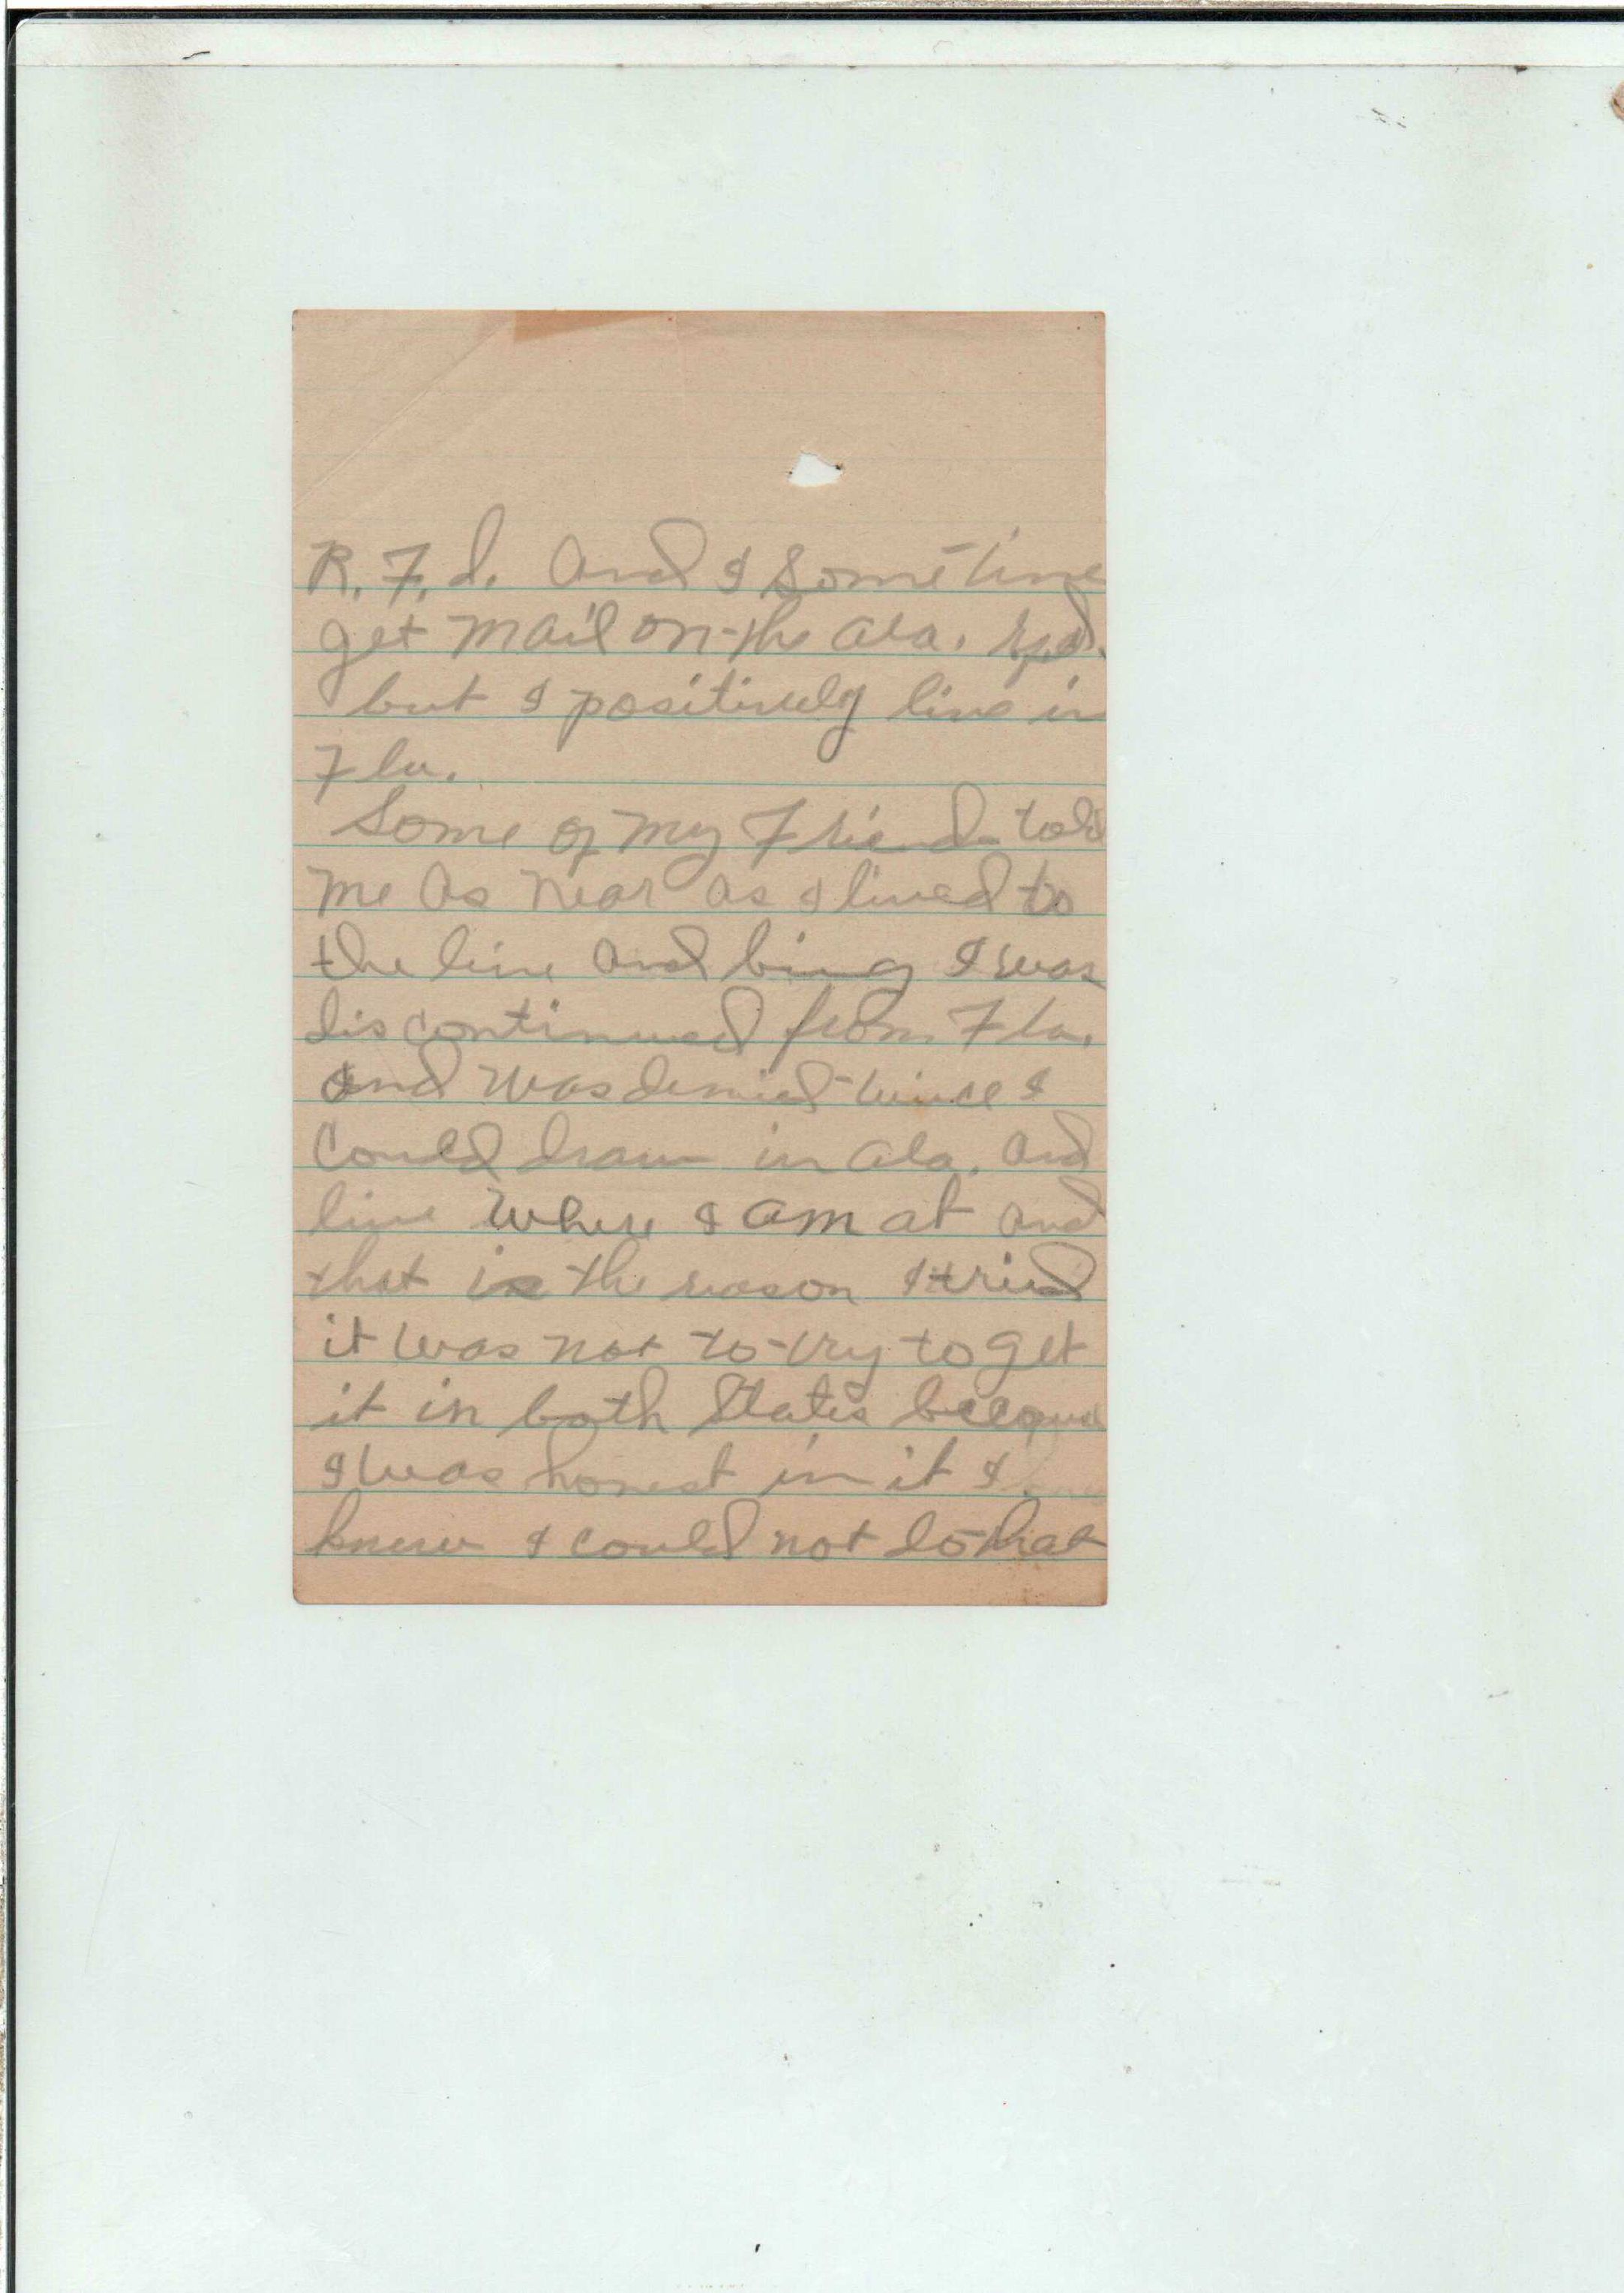 R. F. d. And I Sometime
get mail on the Ala. R.f.d.
but I positively live in
Fla.
Some of my Friends told
me as near as I lived to
the line and being I was
discontinued from Fla.
and was denied twice I
could draw in Ala. and
live where I am at and
that is the reason I tried
it was not to try to get
it in both States because
I was honest in it I
knew I could not do that